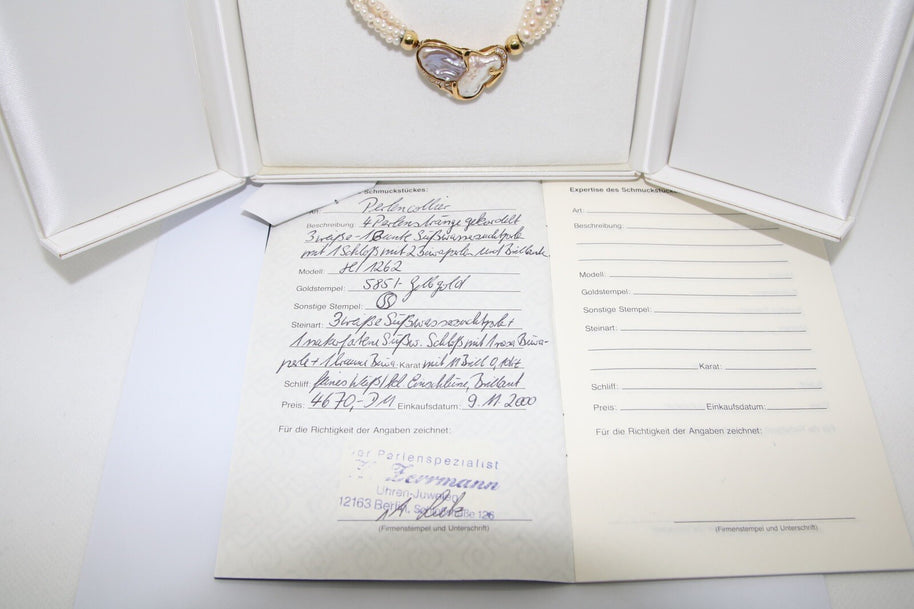 Schmuckstückes:
Art: Perlencollier
Beschreibung: 4 Perlenstränge gekordelt
3 weiße - 1 Bunte Süßwasserzuchtperle
mit 1 Schloß mit 2 Biwaperlen und Brillanten
Modell: H/1262
Goldstempel: 585/- Gelbgold
Sonstige Stempel:
Steinart: 3 weiße Süßwasserzuchtperl +
1 naturfarbene Süßw. Schloß mit 1 rosa Biwa-
perle + 1 Biwa. Karat mit 11 Brill.
Schliff: feines Weiß/ kl. Einschlüsse, Brillant
Preis: 4670,- DM Einkaufsdatum: 9.11.2000
Für die Richtigkeit der Angaben zeichnet:
Der Perlenspezialist
Herrmann
Uhren-Juwelen
12163 Berlin, Schloßstraße 126
(Firmenstempel und Unterschrift)
Expertise des Schmuckstückes
Art:
Beschreibung:
Modell:
Goldstempel:
Sonstige Stempel:
Steinart:
Karat:
Schliff:
Preis: Einkaufsdatum:
Für die Richtigkeit der Angaben zeichnet:
(Firmenstempel und Unterschrift)